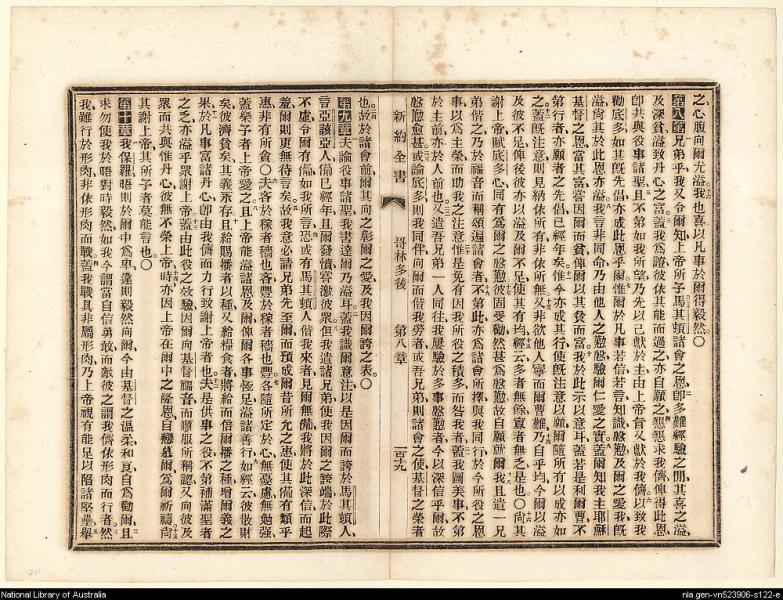 之心腹向爾尤溢我也喜以凡事於爾得毅然〇
第八章兄弟乎我又令爾知上帝所予馬其頓諸會之恩卽多難經驗之間其喜之溢
及深貧溢致丹心之富蓋我爲證彼依其能而過之亦自願之懇懇求我儕俾得此恩
卽共與役事諸聖且不第如我所望乃先以己獻於主由上帝旨又獻於我儕以致我
勸底多如其旣先倡亦成此恩乎爾惟爾於凡事若信若言知識慇懃及爾之愛我旣
溢尙其於此恩亦溢我言非同命乃由他人之慇懃驗爾仁愛之實蓋爾知我主耶穌
基督之恩富其富嘗因爾而貧俾爾以其貧而富我於此示以意耳蓋若是利爾曹不
第行者亦願者之先倡已經年矣惟今亦成其行使旣注意以願爾隨所有以成亦如
之蓋旣注意則見納依所有非依所無又非欲他人寧而爾曹難乃自乎均今爾以溢
及彼不足俾後彼亦以溢及爾不足使其有均經云多者無餘寡者無乏是也〇尙其
謝上帝賦底多心同有爲爾之慇懃彼固受勸然甚慇懃故自願就爾我且遣一兄
弟偕之乃於福音而稱頌遍諸會者不第此亦爲諸會所擇與我同行於今所役之恩
事以爲主榮而助我之注意惟是免有因我所役之積多而咎我者蓋我圖美事不第
於主前亦於人前也又遣吾兄弟一人同往我屢驗於多事慇懃者今以深信乎爾故
慇懃愈甚或論底多則我同伴向爾而偕我勞者或吾兄弟則諸會之使基督之榮者
新約全書 哥林多後 第八章 一百十九
也故於諸會前爾其向之彰爾之愛及我因爾誇之表〇
第九章夫論役事諸聖我書達爾乃溢耳蓋我識爾意注以是因爾而誇於馬其頓人
言亞該亞人備已經年且爾發憤嘗激彼衆但我遣諸兄弟使我因爾之誇端於此際
不虛令爾有備如我所言恐或有馬其頓人偕我來者見爾無備我將於此深信而起
羞爾則更無待言矣故我意必請兄弟先至爾而預成爾昔所允之惠使其備有類乎
惠非有所貪〇夫吝於稼者穡也吝豐於稼者穡也豐各隨所定於心無憂慮無勉强
蓋樂予者上帝愛之且上帝能溢諸恩及爾俾爾各事極足溢諸善行如經云彼散財
矣彼濟貧矣其義永存且給賜播者以種又給糧食者將給而倍爾播之種增爾義之
果於凡事富諸丹心卽由我儕而力行致謝上帝者也夫是供事之役不第補滿聖者
之乏亦溢乎衆謝上帝蓋由此役之效驗因爾向基督福音而順服所稱認又向彼及
衆而共與惟丹心彼無不榮上帝時亦因上帝在爾中之隆恩自戀慕爾爲爾祈禱尙
其謝上帝其所予者莫能言也〇
第十章我保羅晤則於爾中爲卑違則毅然向爾今由基督之溫柔和良自爲勸爾且
求勿使我於晤對時毅然如我今謂當自信勇敢而敵彼之謂我儕依形肉而行者然
我雖行於形肉非依形肉而戰蓋我戰具非屬形肉乃上帝視有能足以陷諸堅壘舉
National Library of Australia
nla.gen-vn523906-s122-e